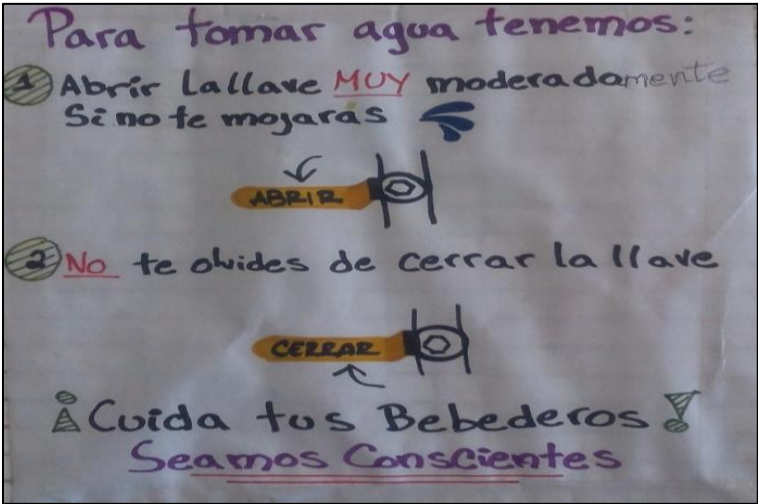 Para tomar agua tenemos:
1 Abrir la llave MUY moderadamente
Si no te mojarás
ABRIR
2 No te olvides de cerrar la llave
CERRAR
¡Cuida tus Bebederos!
Seamos Conscientes